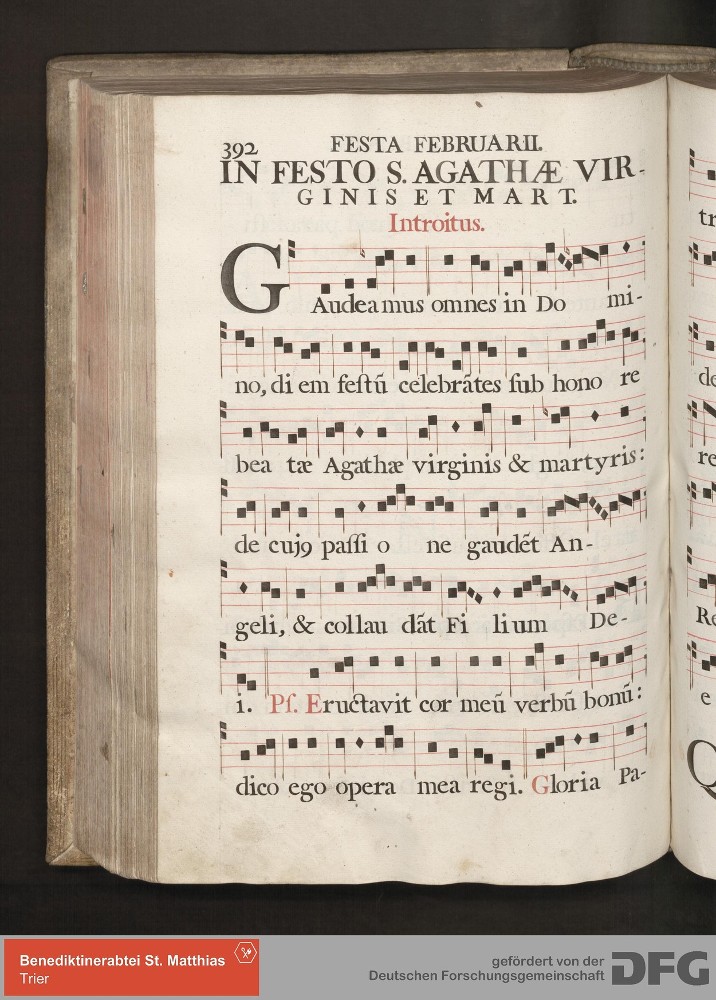 392 FESTA FEBRUARII.
IN FESTO S. AGATHÆ VIR-
GINIS ET MART.
Introitus.
GAudeamus omnes in Do mi-
no, di em feſtũ celebrãtes ſub hono re
bea tæ Agathæ virginis & martyris:
de cujꝰ paſſi o ne gaudẽt An-
geli, & collau dãt Fi lium De-
i. Pſ. Eructavit cor meũ verbũ bonũ:
dico ego opera mea regi. Gloria Pa-
tr
de
re
Re
e
Q
Benediktinerabtei St. Matthias
Trier
gefördert von der
Deutschen Forschungsgemeinschaft
DFG